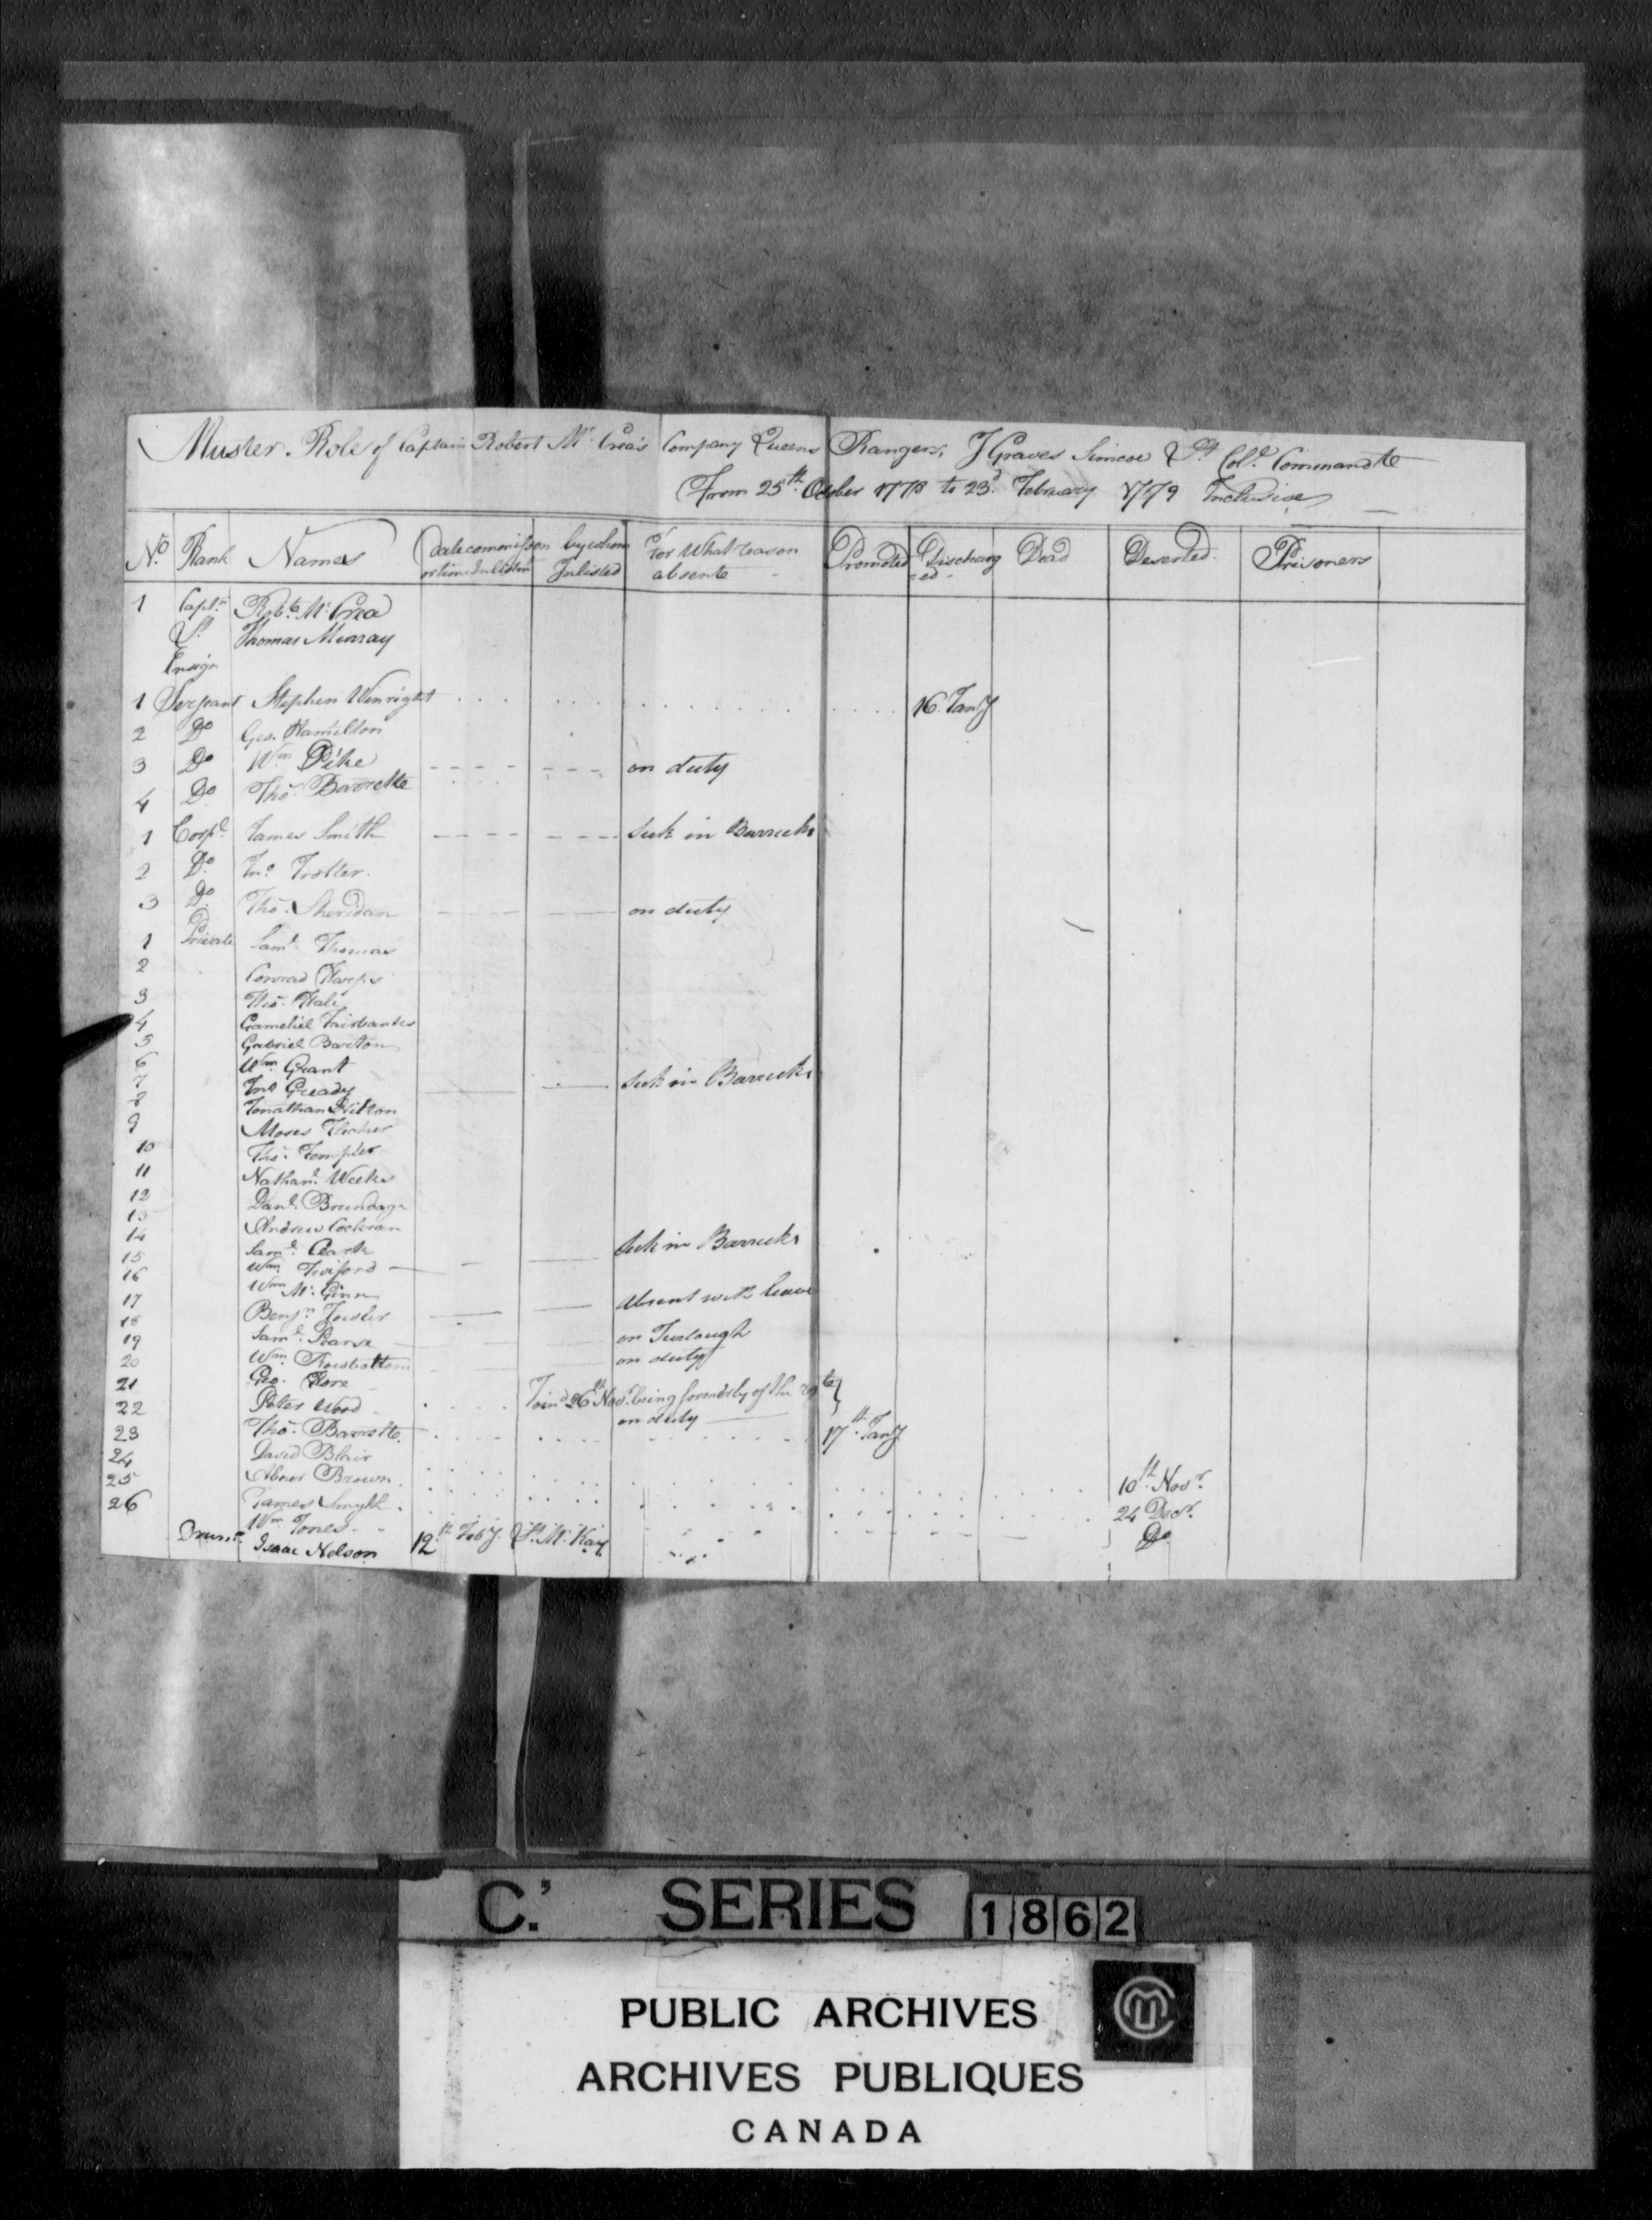 Muster Role of Captain Robert Mc Crea's Company Queens Rangers, J Graves Simcoe Lt Coll. Commandte
From 25th October 1778 to 23d February 1779 Inclusive
No. Rank Names Date commission or time Inlistm by whom Inlisted For What reason absente Promoted Discharg=ed Dead Deserted Prisoners
1 Captn Robt. Mc Crea
Lt Thomas Murray
Ensign
1 Serjeant Stephen Winright 16 Jany
2 Do Geo. Hamelton
3 Do Wm Pike on duty
4 Do Thos. Barrette
1 Corpl James Smith sick in Barrecks
2 Do Jno. Trotter
3 Do Thos. Sheridan on duty
1 Private Saml. Thomas
2 Conrad Harps
3 Thos. Hale
4 Gameliel Fairbanks
5 Gabriel Barton
6 Wm Grant
7 Jno Gready sick in Barrecks
8 Jonathan Hilton
9 Moses
10 Thos. Templer
11 Nathanl. Weeks
12 Danl. Brundage
13 Andrew Cochran
14 Saml. Clark
15 Wm Twiford sick in Barrecks
16 Wm Mc Ginn
17 Benjn Fowler absent with leave
18 Saml. Pearse on Furlough
19 Wm Rowbottom on duty
20 Geo. Hore
21 Peter Wood Joind 26th Novr. being formerly of the
22 Thos. Barrette 17th Jany
23 David Blair
24 Abner Brown 10th Novr
25 James Smyth 24 Decr.
26 Wm Jones Do
Drumr. Isaac Nelson 12th Feby. Lt. Mc Kay
on duty
C. SERIES 1862
PUBLIC ARCHIVES
ARCHIVES PUBLIQUES
CANADA